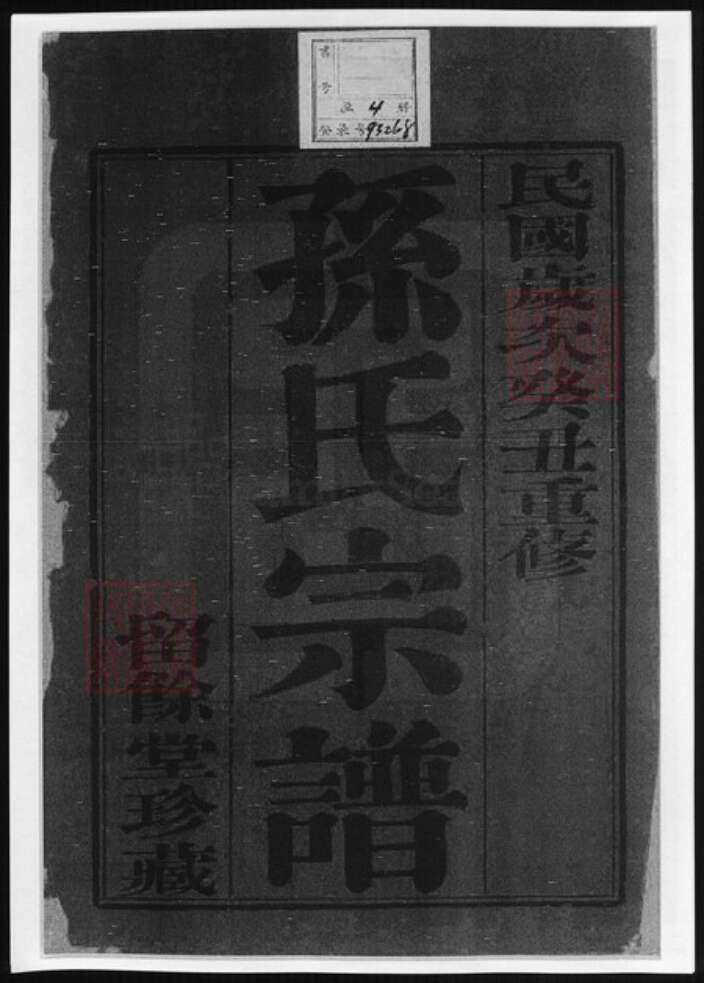 書
號
函 4 冊
登錄號 93268
民國歲次癸丑重修
孫氏宗譜
留餘堂珍藏